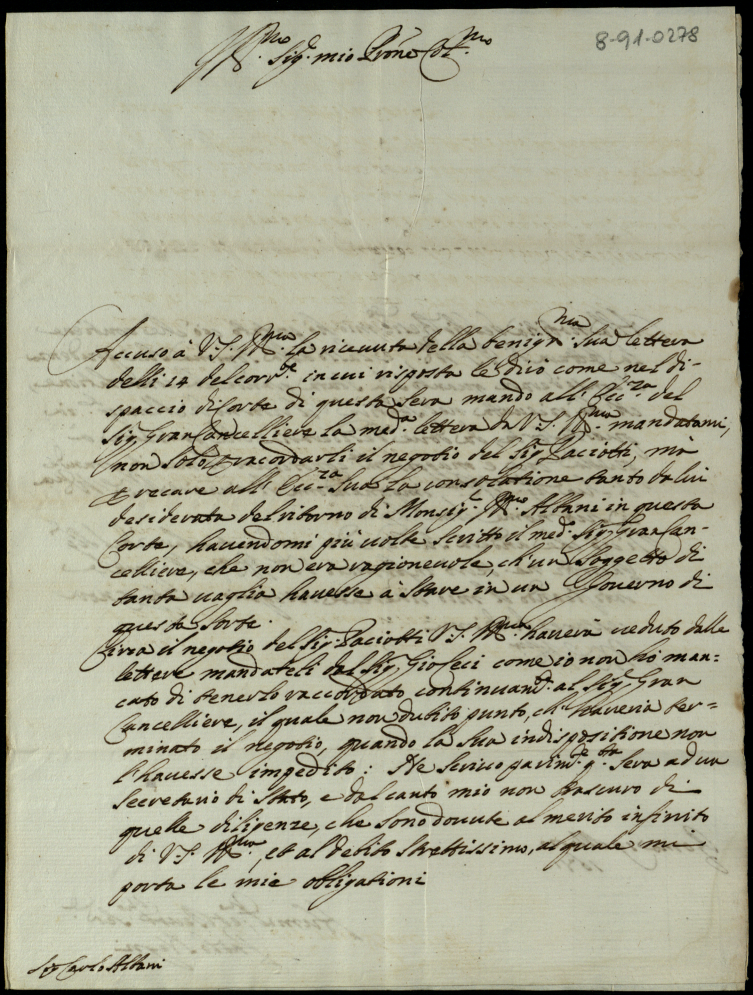 8-91-0278
Ill.mo Sig.r mio Prone Col.mo
Accuso à V.S. Ill.ma la riceuuta della benig.ma sua lettera
delli 14 del corr.te in cui risposta le dirò come nel di-
spaccio di Corte di questa sera mando all' Ecc.za del
Sig. Gran Cancelliere la med.a lettera da V.S. Ill.ma mandatami,
non solo p racordarli il negotio del Sig. Paciotti, mà
p recare all' Ecc.za Sua la consolatione tanto da lui
desiderata del ritorno di Monsig.r Ill.mo Albani in questa
Corte, hauendomi più uolte scritto il med.o Sig. Gran Can-
celliere, che non era ragioneuole, ch'un Soggetto di
tanta uaglia hauesse à stare in un Gouerno di
questa sorte.
Circa il negotio del Sig. Paciotti V.S. Ill.ma hauerà ueduto dalle
lettere mandateli dal Sig. Gioseci come io non hò man-
cato di tenerlo raccordato continuam.te al Sig. Gran
Cancelliere, il quale non dubito punto, ch' haueria ter=
minato il negotio, quando la sua indispositione non
l'hauesse impedito: Ne scriuo parim.te q.ta sera ad un
Secretario di Stato, e dal canto mio non trascuro di
quelle diligenze, che sono douute al merito infinito
di V.S. Ill.ma, et al debito strettissimo, al quale mi
porta le mie obligationi
Sig. Carlo Albani